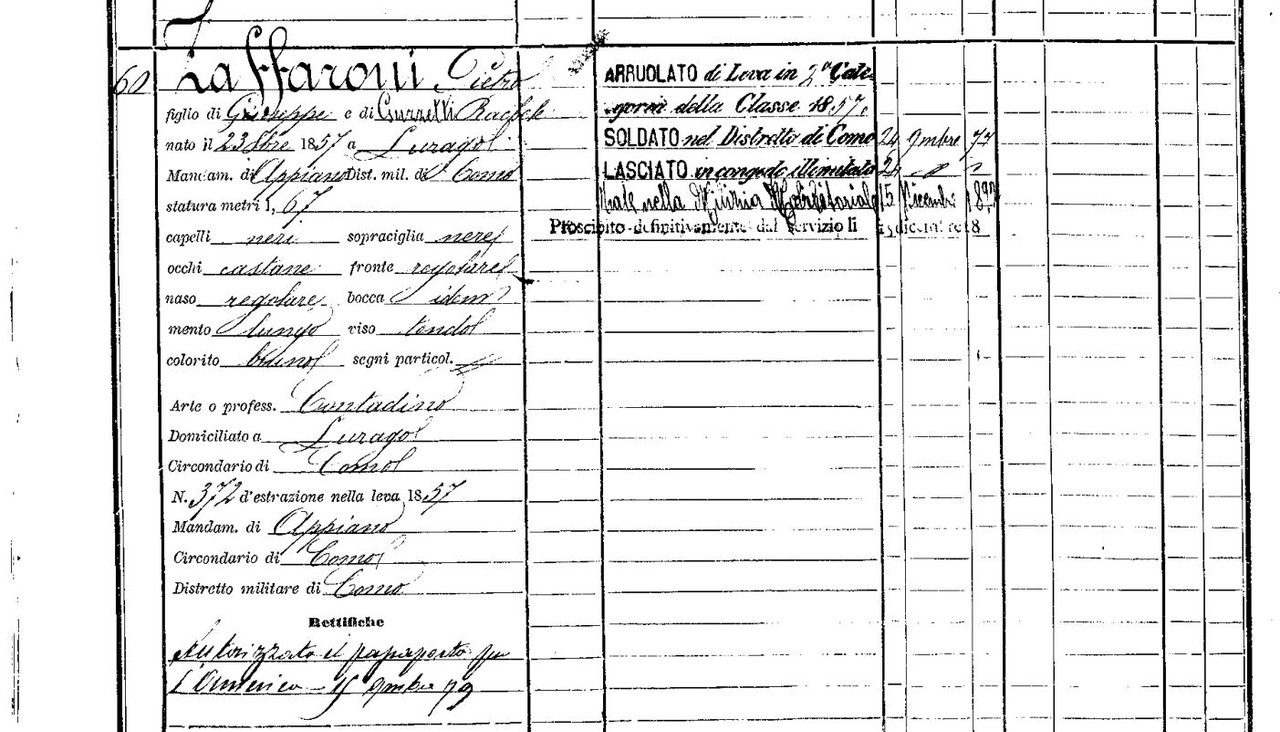 60
Zaffaroni Pietro
figlio di Giuseppe e di Guzzetti Rachele
nato il 23 8bre 1857 a Lurago
Mandam. di Appiano Dist. mil. di Como
statura metri 1, 67
capelli neri sopraciglia nere
occhi castane fronte regolare
naso regolare bocca idem
mento lungo viso tondo
colorito bruno segni particol.
Arte o profess. Contadino
Domiciliato a Lurago
Circondario di Como
N. 372 d'estrazione nella leva 1857
Mandam. di Appiano
Circondario di Como
Distretto militare di Como
Rettifiche
Autorizzato il passaporto per
L'America 9mbre 79
ARRUOLATO di Leva in 2ª Cate-
goria della Classe 1857.
SOLDATO nel Distretto di Como 24 9mbre 77
LASCIATO in congedo illimitato 24
nella Milizia Territoriale 15 Dicembre
Prosciolto definitivamente dal servizio li dicembre 18